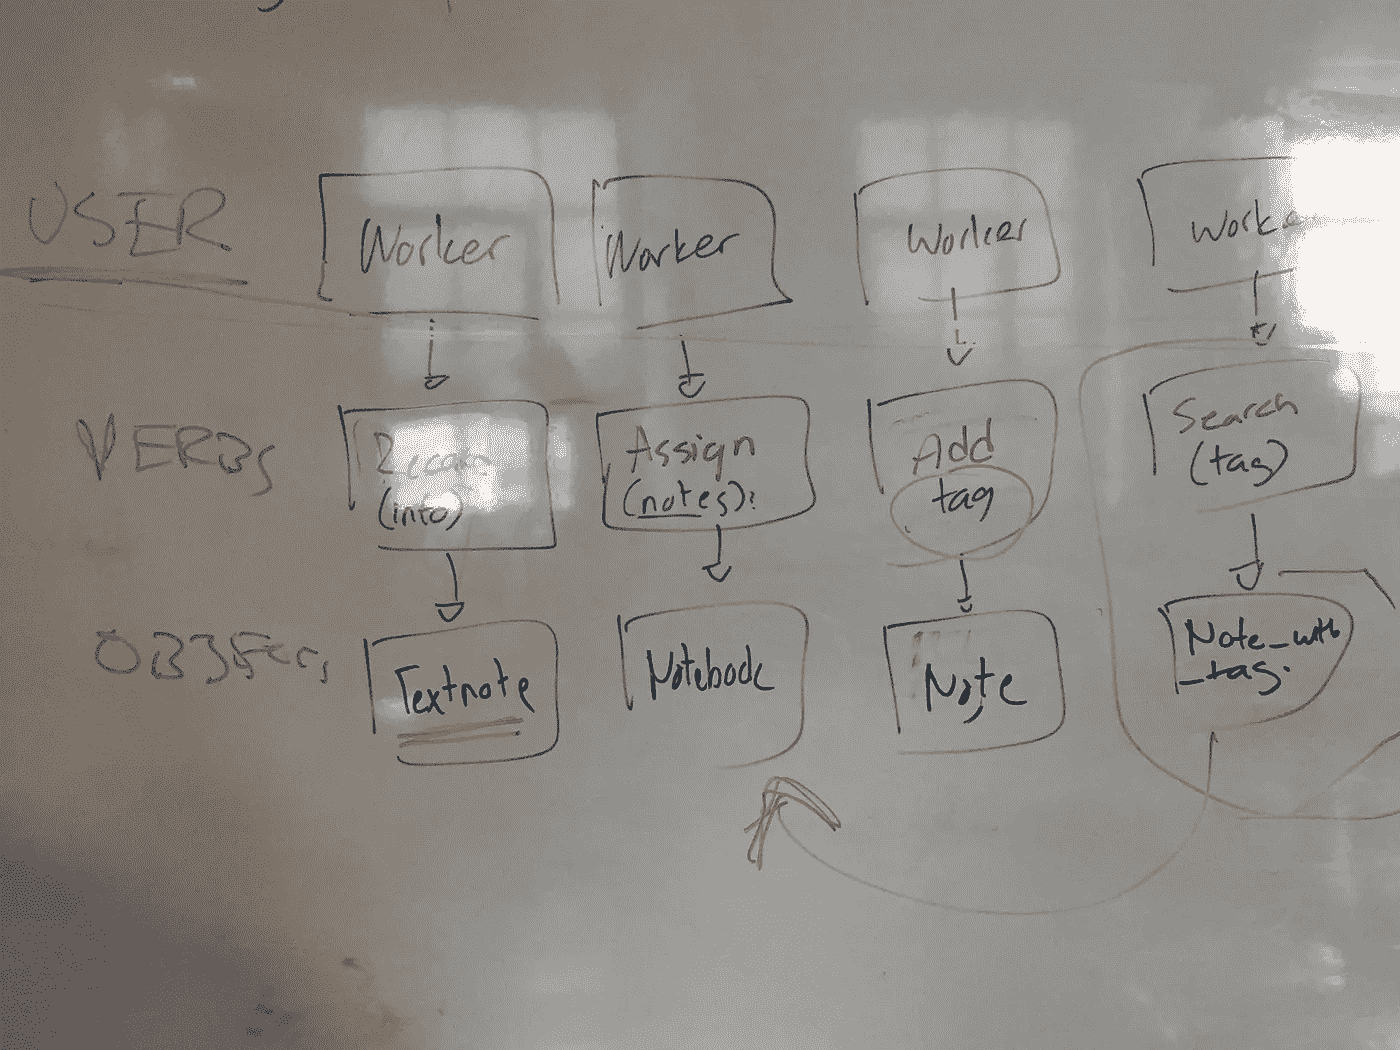 USER
Worker
Worker
Worker
Work
VERBS
(info)
Assign
(notes):
Add
tag
Search
(tag)
OBJECTS
Textnote
Notebook
Note
Note_with
_tag.